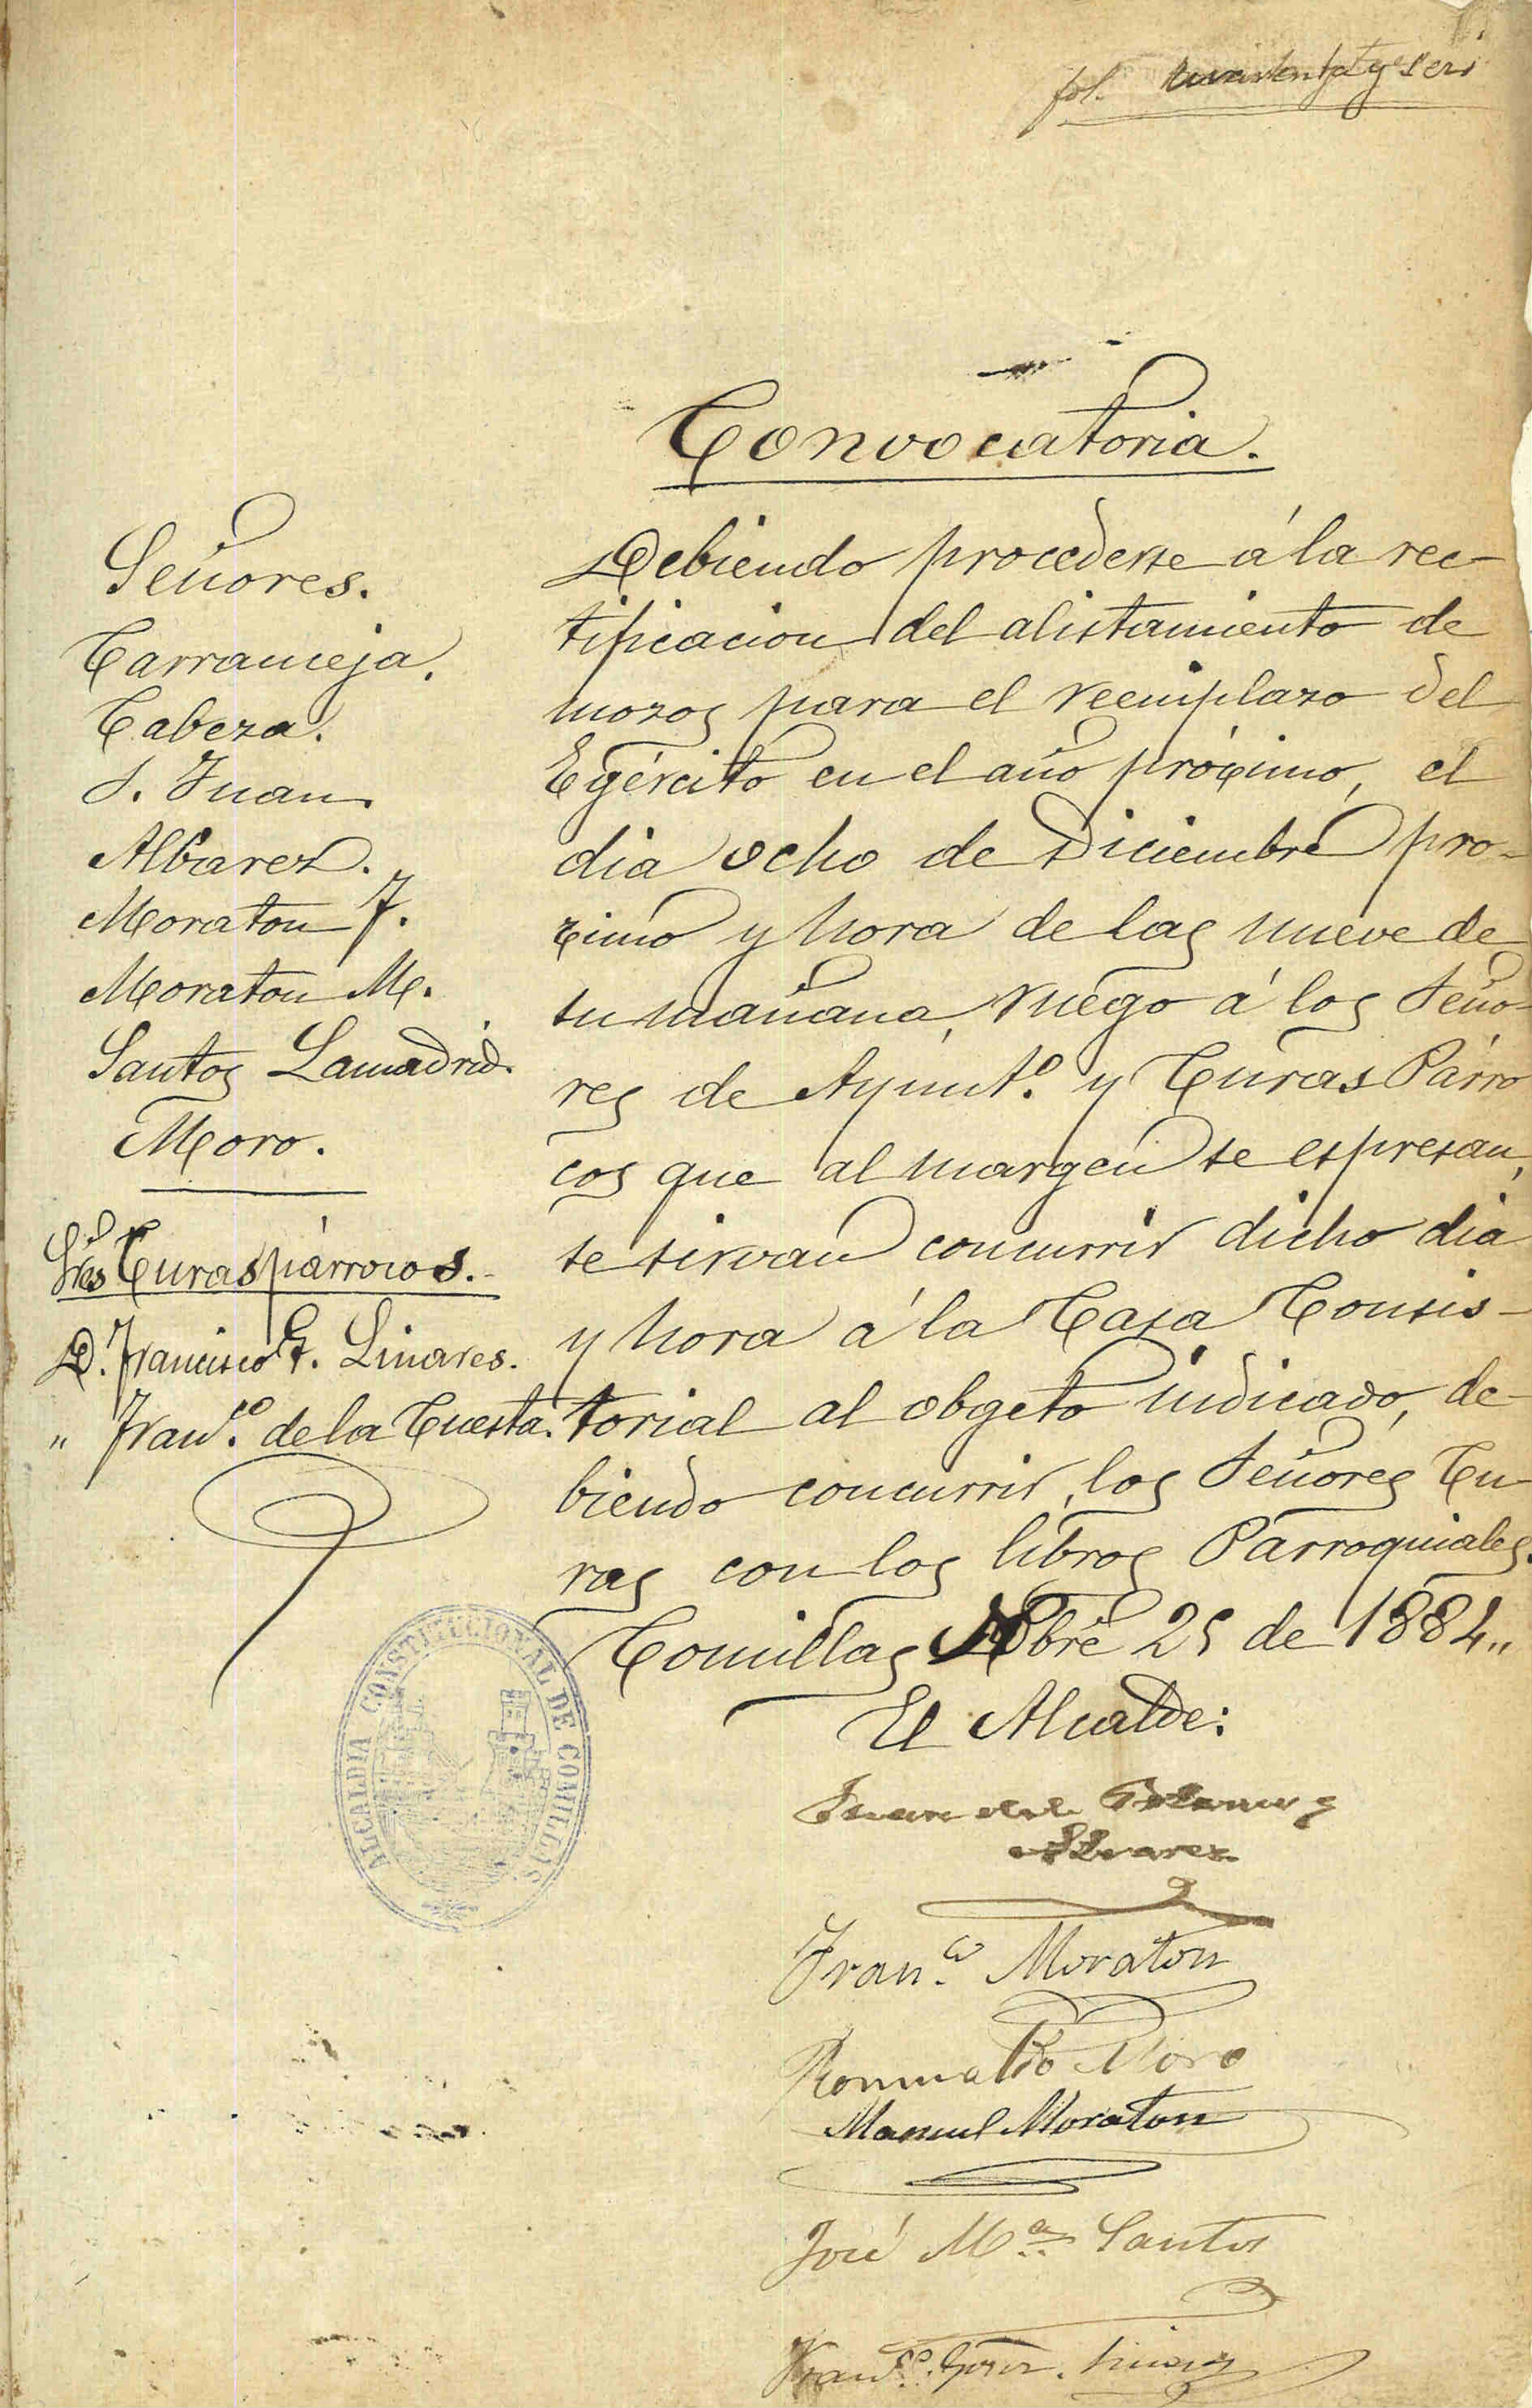 fol. cuarenta y seis
Convocatoria.
Señores.
Carranceja.
Cabeza.
S. Juan.
Albarez.
Moraton F.
Moraton M.
Santos Lamadrid.
Moro.
Sres Curas párrocos.
D. Francisco G. Linares.
" Fran.co de la Cuesta.
Debiendo procederse á la rec-
tificacion del alistamiento de
mozos para el reemplazo del
Egército en el año próximo, el
dia ocho de Diciembre pro-
ximo y hora de las nueve de
su mañana, ruego á los Seño-
res de Ayunt.o y Curas Párro
cos que al margen se espresan,
se sirvan concurrir dicho dia
y hora á la Casa Consis-
torial al obgeto indicado, de-
biendo concurrir, los Señores Cu-
ras con los libros Parroquiales.
Comillas Nbre 25 de 1884"
El Alcalde:
ALCALDIA CONSTITUCIONAL DE COMILLAS
Juan
Alvarez
Fran.co Moraton
Romualdo Moro
Manuel Moraton
José M.a Santos
Fran.co